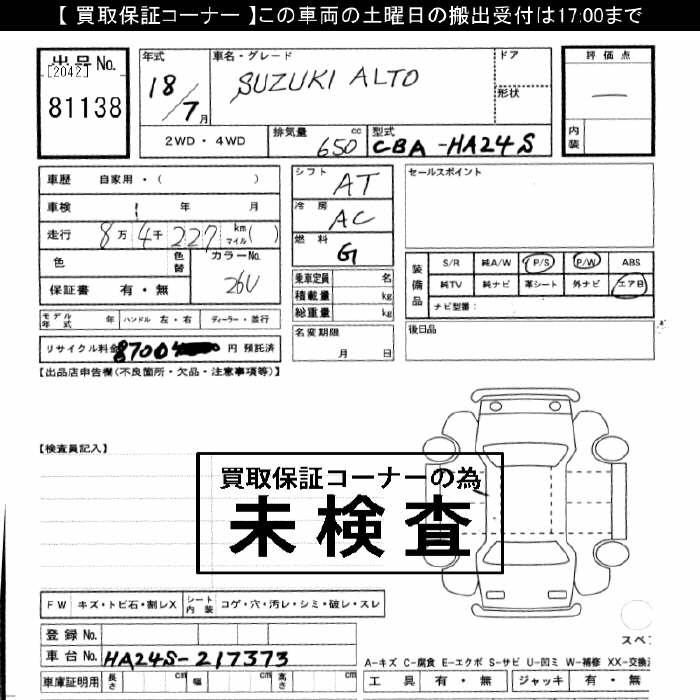 【 買取保証コーナー 】この車両の土曜日の搬出受付は17:00まで
出品No.
[2042]
81138
年式
18/7月
車名・グレード
SUZUKI ALTO
ドア
形状
評価点
—
内装
2WD・4WD
排気量 650 cc
型式 CBA-HA24S
車歴 自家用・( )
車検 年 月
走行 8万4千227 km マイル( )
色
色替
カラーNo.
26U
保証書 有・無
シフト AT
冷房 AC
燃料 G
乗車定員 名
積載量 kg
総重量 kg
名変期限
月 日
セールスポイント
装備品
S/R 純A/W P/S P/W ABS
純TV 純ナビ 革シート 外ナビ エアB
ナビ型番:
後日品
モデル年式 年 ハンドル 左・右 ディーラー・並行
リサイクル料金 円 預託済
【出品店申告欄(不良箇所・欠品・注意事項等)】
【検査員記入】
買取保証コーナーの為
未検査
FW キズ・トビ石・割レX シート内装 コゲ・穴・汚レ・シミ・破レ・スレ
登録No.
車台No. HA24S-217373
スペ
A-キズ C-腐食 E-エクボ S-サビ U-凹ミ W-補修 XX-交換済
車庫証明用 長さ cm 幅 cm 高さ cm
工具 有・無 ジャッキ 有・無